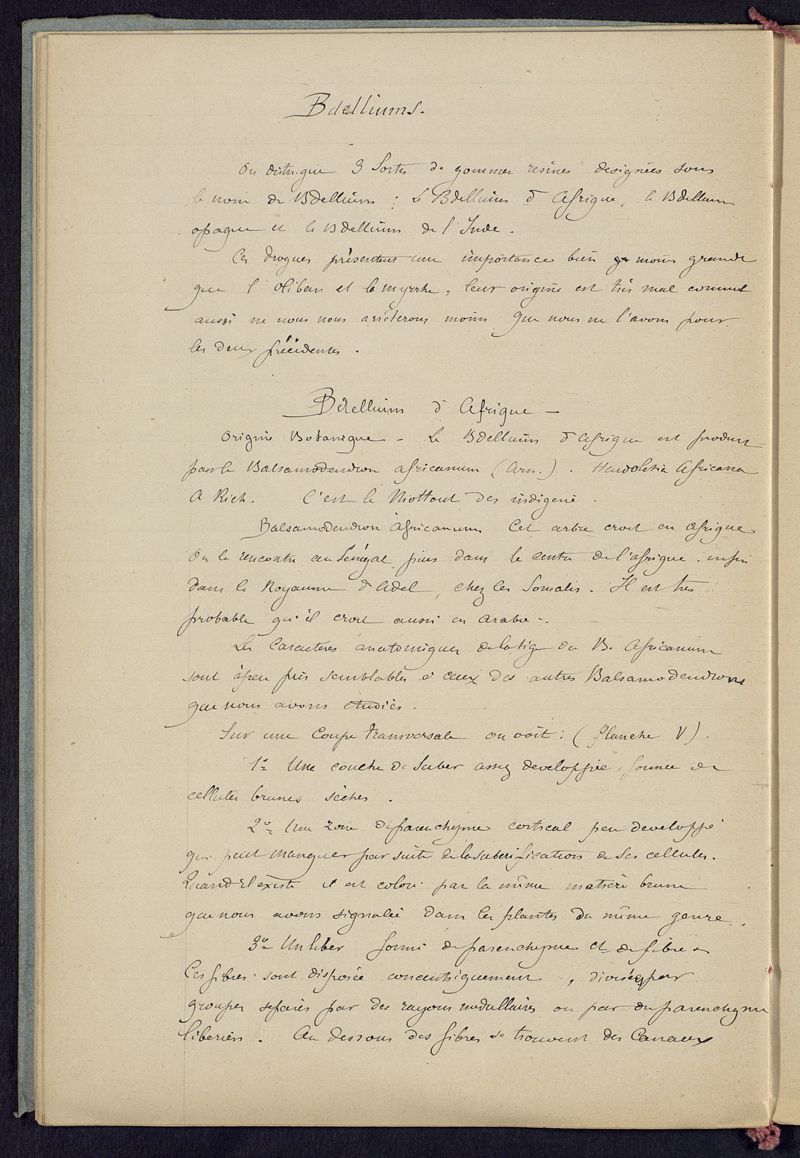 Bdelliums.
On distingue 3 Sortes de gommes resines designées sous
le nom de Bdellium ; Le Bdellium d'Afrique, le Bdellium
opaque et le Bdellium de l'Inde.
Ces drogues présentent une importance bien moins grande
que l'Oliban et la myrrhe, leur origine est très mal connue
aussi ne nous nous arrêterons moins que nous ne l'avons pour
les deux précédentes.
Bdellium d'Afrique —
Origine Botanique — Le Bdellium d'Afrique est produit
par le Balsamodendron africanum (Arn.). Heudelotia Africana
A Rich. C'est le Niottout des indigene.
Balsamodendron Africanum Cet arbre croit en Afrique
On le rencontre au Sénégal, puis dans le centre de l'afrique. enfin
dans le Royaume d'Adel, chez les Somalis. Il est très
probable qu'il croit aussi en Arabie -.
Les Caractères anatomiques de la tige du B. Africanum
sont à peu près semblables à ceux des autres Balsamodendrons
que nous avons étudiés.
Sur une Coupe transversale on voit : (Planche V).
1º Une couche de Suber assez developpée, formée de
cellules brunes sèches.
2º Une zone de parenchyme cortical peu developpé
qui peut manquer par suite de la subérification de ses cellules.
Quand il existe il est coloré par la même matière brune
que nous avons signalée dans les plantes du même genre.
3º Un liber formé de parenchyme et de fibres
Ces fibres sont disposée concentriquement, divisées par
groupes séparés par des rayons medullaires ou par du parenchyme
liberien. Au dessous des fibres se trouvent des Canaux